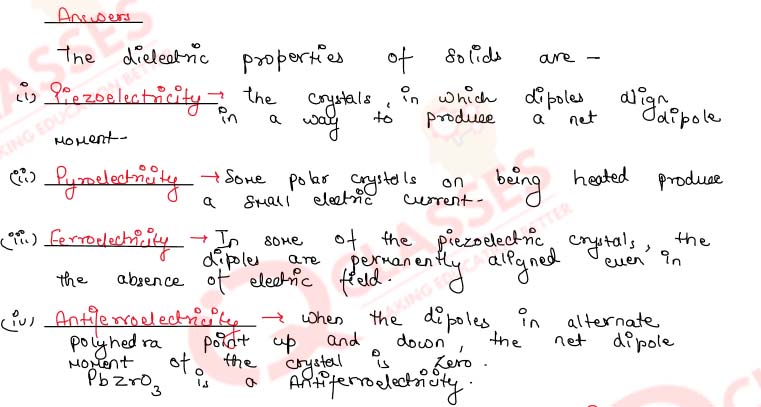 Answers
The dielectric properties of solids are -
(i) Piezoelectricity → The crystals, in which dipoles align
in a way to produce a net dipole
moment-
(ii) Pyroelectricity → Some polar crystals on being heated produce
a small electric current-
(iii) Ferroelectricity → In some of the piezoelectric crystals, the
dipoles are permanently aligned even in
the absence of electric field.
(iv) Antiferroelectricity → when the dipoles in alternate
polyhedra point up and down, the net dipole
moment of the crystal is zero.
PbZrO3 is a Antiferroelectricity.
CLASSES
MAKING EDUCATION BETTER